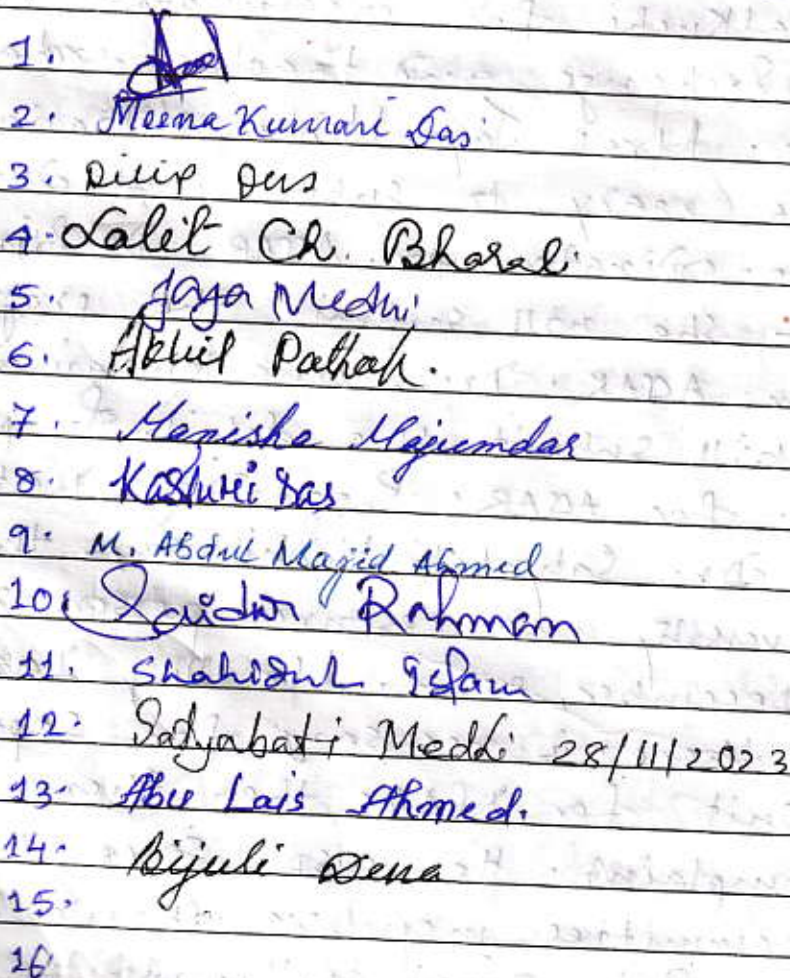 1.
2. Meena Kumari Das
3. Dilip Das
4. Lalit Ch. Bharali
5. Jaya Medhi
6. Akhil Pathak.
7. Manisha Majumdar
8. Kasturi Das
9. M. Abdul Majid Ahmed
10. Saidur Rahman
11. Shahidul Islam
12. Satyabati Medhi 28/11/2023
13. Abu Lais Ahmed.
14. Bijuli Deka
15.
16.